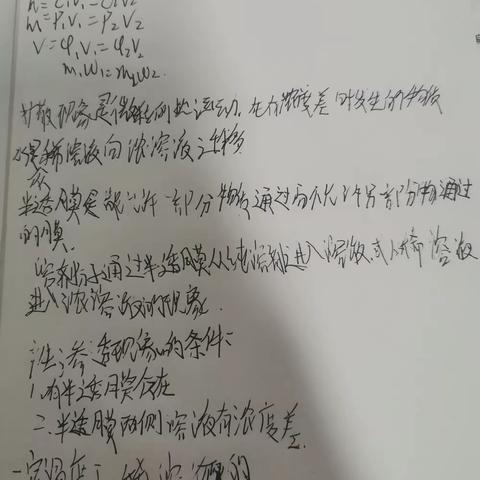 n=C₁V₁=C₂V₂
m=ρ₁V₁=ρ₂V₂
V=φ₁V₁=φ₂V₂
m₁W₁=m₂W₂
扩散现象是微粒的热运动,在有浓度差时发生的物质
水是稀溶液向浓溶液迁移
半透膜是能允许一部分物质通过而不允许另部分物通过
的膜.
溶剂分子通过半透膜从纯溶剂进入溶液或从稀溶液
进入浓溶液的现象.
产生渗透现象的条件:
1.有半透膜存在
二.半透膜两侧溶液有浓度差.
一定温度下 稀溶液的